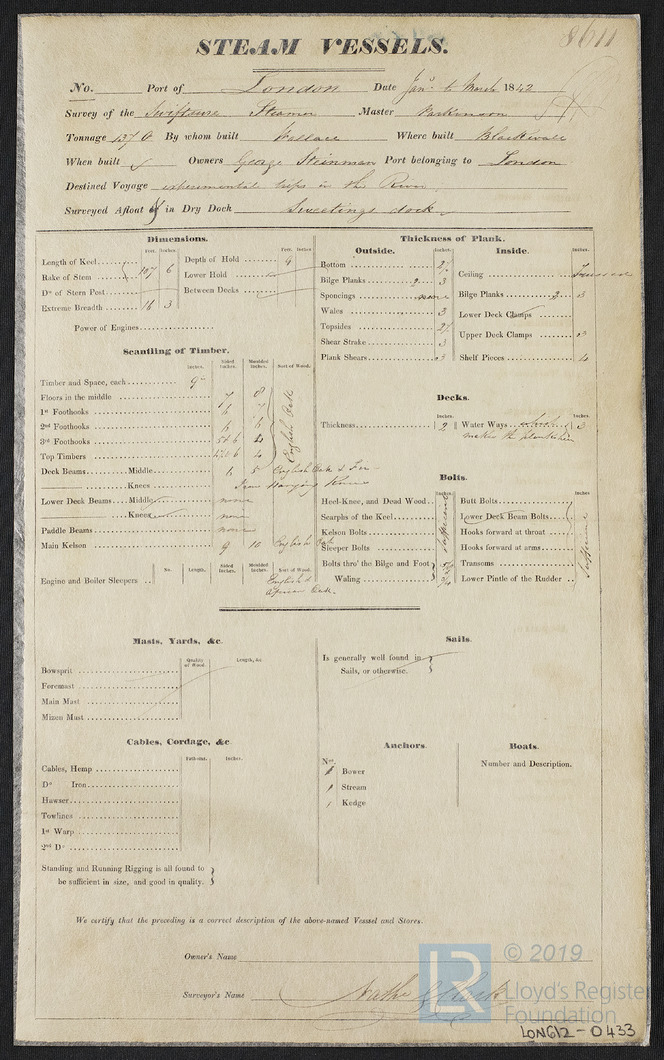 8611
STEAM VESSELS.
No. Port of London Date Jany to March 1842
Survey of the Swiftsure Steamer Master Parkinson
Tonnage 137 By whom built Wallace Where built Blackwall
When built Owners George Steinman Port belonging to London
Destined Voyage experimental trips in the River
Surveyed Afloat or in Dry Dock Sweetings dock
Dimensions.
Feet. Inches
Length of Keel
Rake of Stem 107 6
Do of Stern Post
Extreme Breadth 16 3
Feet. Inches
Depth of Hold 9
Lower Hold
Between Decks
Power of Engines
Scantling of Timber.
Inches. Sided Inches. Moulded Inches. Sort of Wood.
Timber and Space, each 9
Floors in the middle 7 8
1st Foothooks 6 7
2nd Foothooks 6 6
3rd Foothooks 5 to 6 4
Top Timbers 4
English Oak
Deck Beams Middle 6 5 English Oak & Fir
Knees Iron Hanging Knees
Lower Deck Beams Middle none
Knees none
Paddle Beams none
Main Kelson 9 10 English Oak
No. Length. Sided Inches. Moulded Inches. Sort of Wood.
Engine and Boiler Sleepers English & African Oak
Thickness of Plank.
Outside. Inches.
Bottom 2½
Bilge Planks 2 3
Sponcings none
Wales 3
Topsides 2½
Shear Strake 3
Plank Shears 3
Inside. Inches.
Ceiling Trussed
Bilge Planks 2 3
Lower Deck Clamps
Upper Deck Clamps 3
Shelf Pieces 4
Decks.
Inches. Inches.
Thickness 2 Water Ways 3
makes the planksheer
Bolts.
Inches
Heel-Knee, and Dead Wood
Scarphs of the Keel
Kelson Bolts
Sleeper Bolts
Bolts thro' the Bilge and Foot
Waling
Sufficient
Inches
Butt Bolts
Lower Deck Beam Bolts
Hooks forward at throat
Hooks forward at arms
Transoms
Lower Pintle of the Rudder
Masts, Yards, &c.
Quality of Wood. Length, &c
Bowsprit
Foremast
Main Mast
Mizen Mast
Sails.
Is generally well found in
Sails, or otherwise.
Cables, Cordage, &c.
Fathoms. Inches.
Cables, Hemp
Do Iron
Hawser
Towlines
1st Warp
2nd Do
Standing and Running Rigging is all found to
be sufficient in size, and good in quality.
Anchors.
Nos.
Bower
Stream
Kedge
Boats.
Number and Description.
We certify that the preceding is a correct description of the above-named Vessel and Stores.
Owner's Name
Surveyor's Name Nathl G Clark
LR © 2019
Lloyd's Register
Foundation
LON612-0433